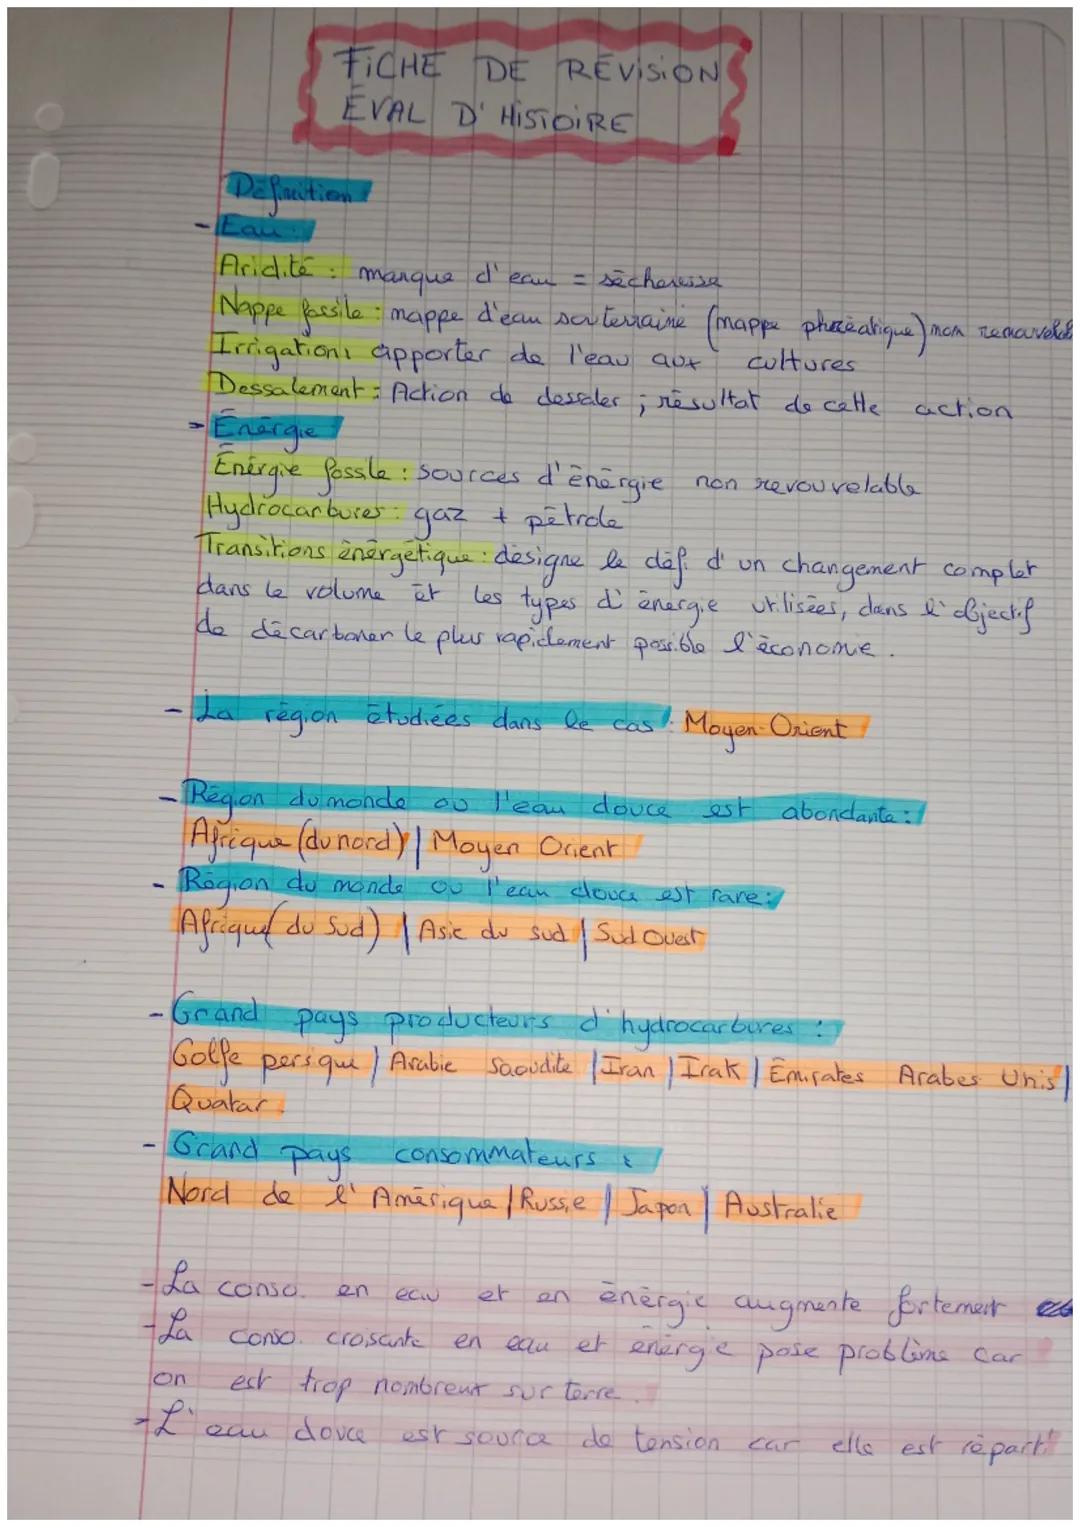 FICHE DE RÉVISION
ÉVAL D'HISTOIRE
Définition
- Eau :
Aridité : manque d'eau = sécheresse
Nappe fossile : nappe d'eau souterraine (nappe phréatique) non renouvelable
Irrigation : apporter de l'eau aux cultures
Dessalement : Action de dessaler ; résultat de cette action
- Énergie
Énergie fossile : sources d'énergie non revouvelable
Hydrocarbures : gaz + pétrole
Transitions énergétique : désigne le défi d'un changement complet
dans le volume et les types d'énergie utilisées, dans l'objectif
de décarboner le plus rapidement possible l'économie.
- La région étudiées dans le cas : Moyen-Orient
- Région du monde ou l'eau douce est abondante :
Afrique (du nord) | Moyen Orient
- Région du monde ou l'eau douce est rare :
Afrique (du Sud) | Asie du sud | Sud Ouest
- Grand pays producteurs d'hydrocarbures :
Golfe persique | Arabie Saoudite | Iran | Irak | Émirates Arabes Unis |
Quatar
- Grand pays consommateurs :
Nord de l'Amérique | Russie | Japon | Australie
- La conso. en eau et en énergie augmente fortement
- La conso. croisante en eau et énergie pose problème car
on est trop nombreux sur terre.
- L'eau douce est source de tension car elle est réparti